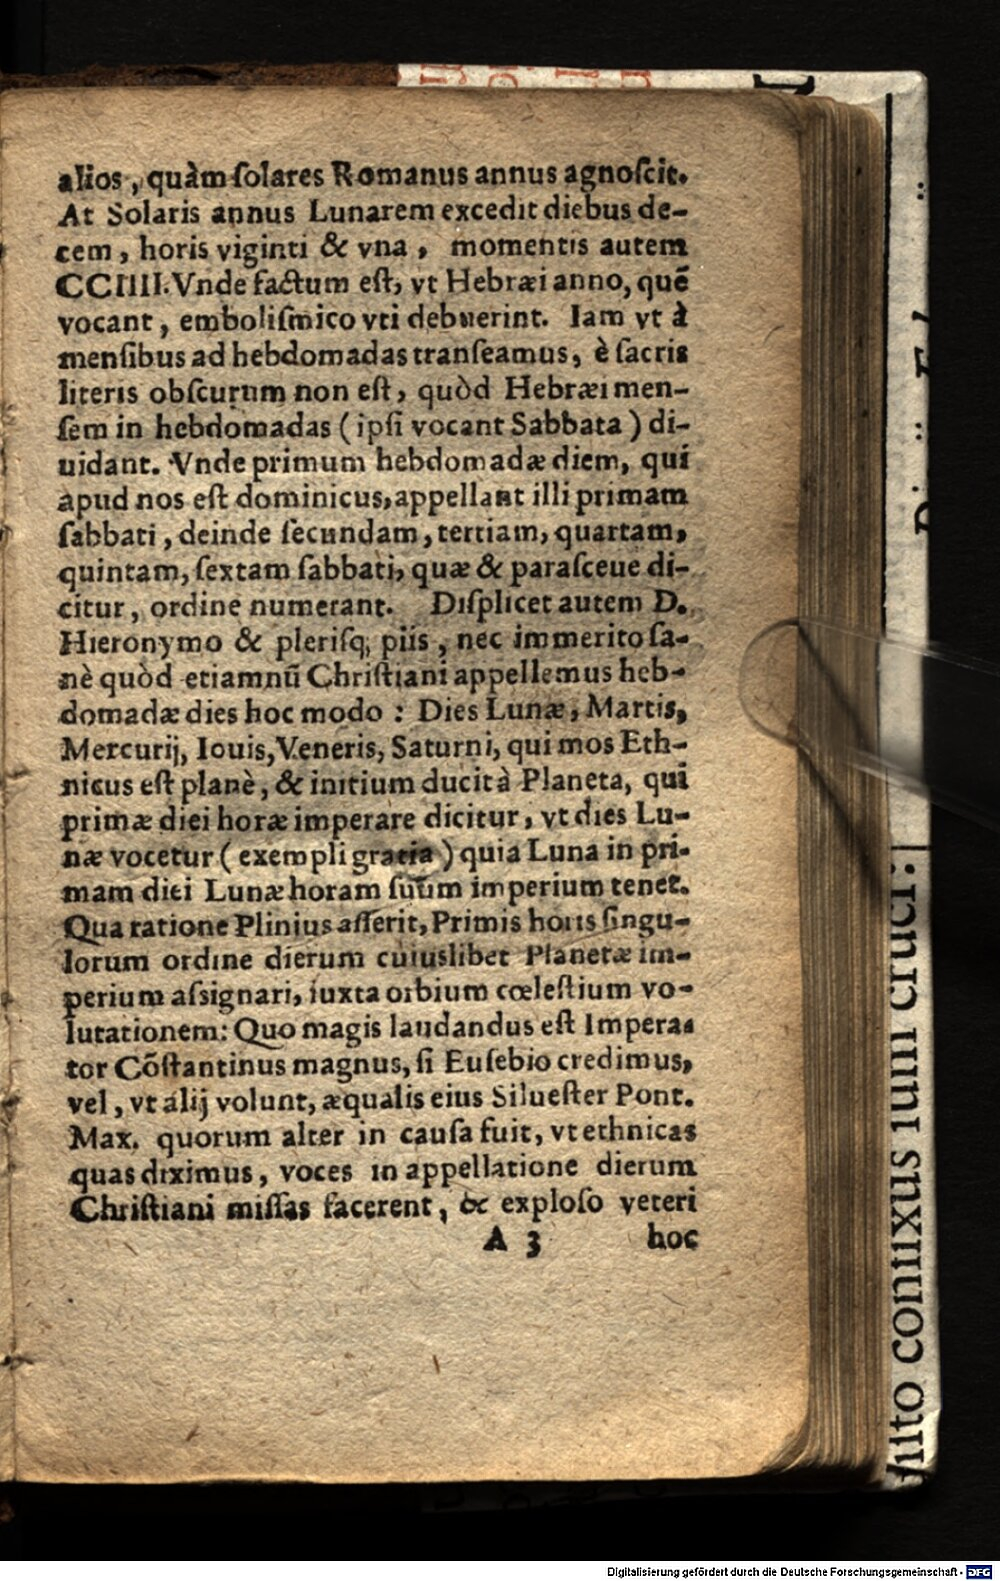 alios, quàm ſolares Romanus annus agnoſcit.
At Solaris annus Lunarem excedit diebus de-
cem, horis viginti & vna, momentis autem
CCIIII. Vnde factum eſt, vt Hebræi anno, quẽ
vocant, emboliſmico vti debuerint. Iam vt à
menſibus ad hebdomadas tranſeamus, è ſacris
literis obſcurum non eſt, quòd Hebræi men-
ſem in hebdomadas (ipſi vocant Sabbata) di-
uidant. Vnde primum hebdomadæ diem, qui
apud nos eſt dominicus, appellant illi primam
ſabbati, deinde ſecundam, tertiam, quartam,
quintam, ſextam ſabbati, quæ & paraſceue di-
citur, ordine numerant. Diſplicet autem D.
Hieronymo & pleriſq; piis, nec immerito ſa-
nè quòd etiamnũ Chriſtiani appellemus heb-
domadæ dies hoc modo: Dies Lunæ, Martis,
Mercurij, Iouis, Veneris, Saturni, qui mos Eth-
nicus eſt planè, & initium ducit à Planeta, qui
primæ diei horæ imperare dicitur, vt dies Lu-
næ vocetur (exempli gratia) quia Luna in pri-
mam diei Lunæ horam ſuum imperium tenet.
Qua ratione Plinius aſſerit, Primis horis ſingu-
lorum ordine dierum cuiuslibet Planetæ im-
perium aſsignari, iuxta orbium cœleſtium vo-
lutationem: Quo magis laudandus eſt Impera-
tor Cõſtantinus magnus, ſi Euſebio credimus,
vel, vt alij volunt, æqualis eius Silueſter Pont.
Max. quorum alter in cauſa fuit, vt ethnicas
quas diximus, voces in appellatione dierum
Chriſtiani miſſas facerent, & exploſo veteri
A 3 hoc
Digitalisierung gefördert durch die Deutsche Forschungsgemeinschaft - DFG